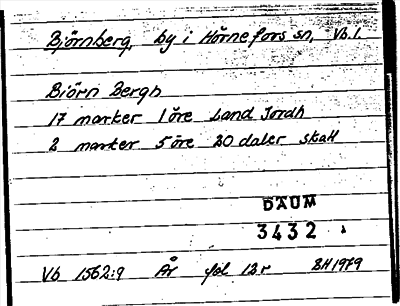 Björnberg, by i Hörnefors sn, Vb.l.
Biörn Bergh
17 marker 1 öre Land Jordh
2 marker 5 öre 20 daler skatt
DAUM
3432
Vb 1562:9 År fol 12r BH1979